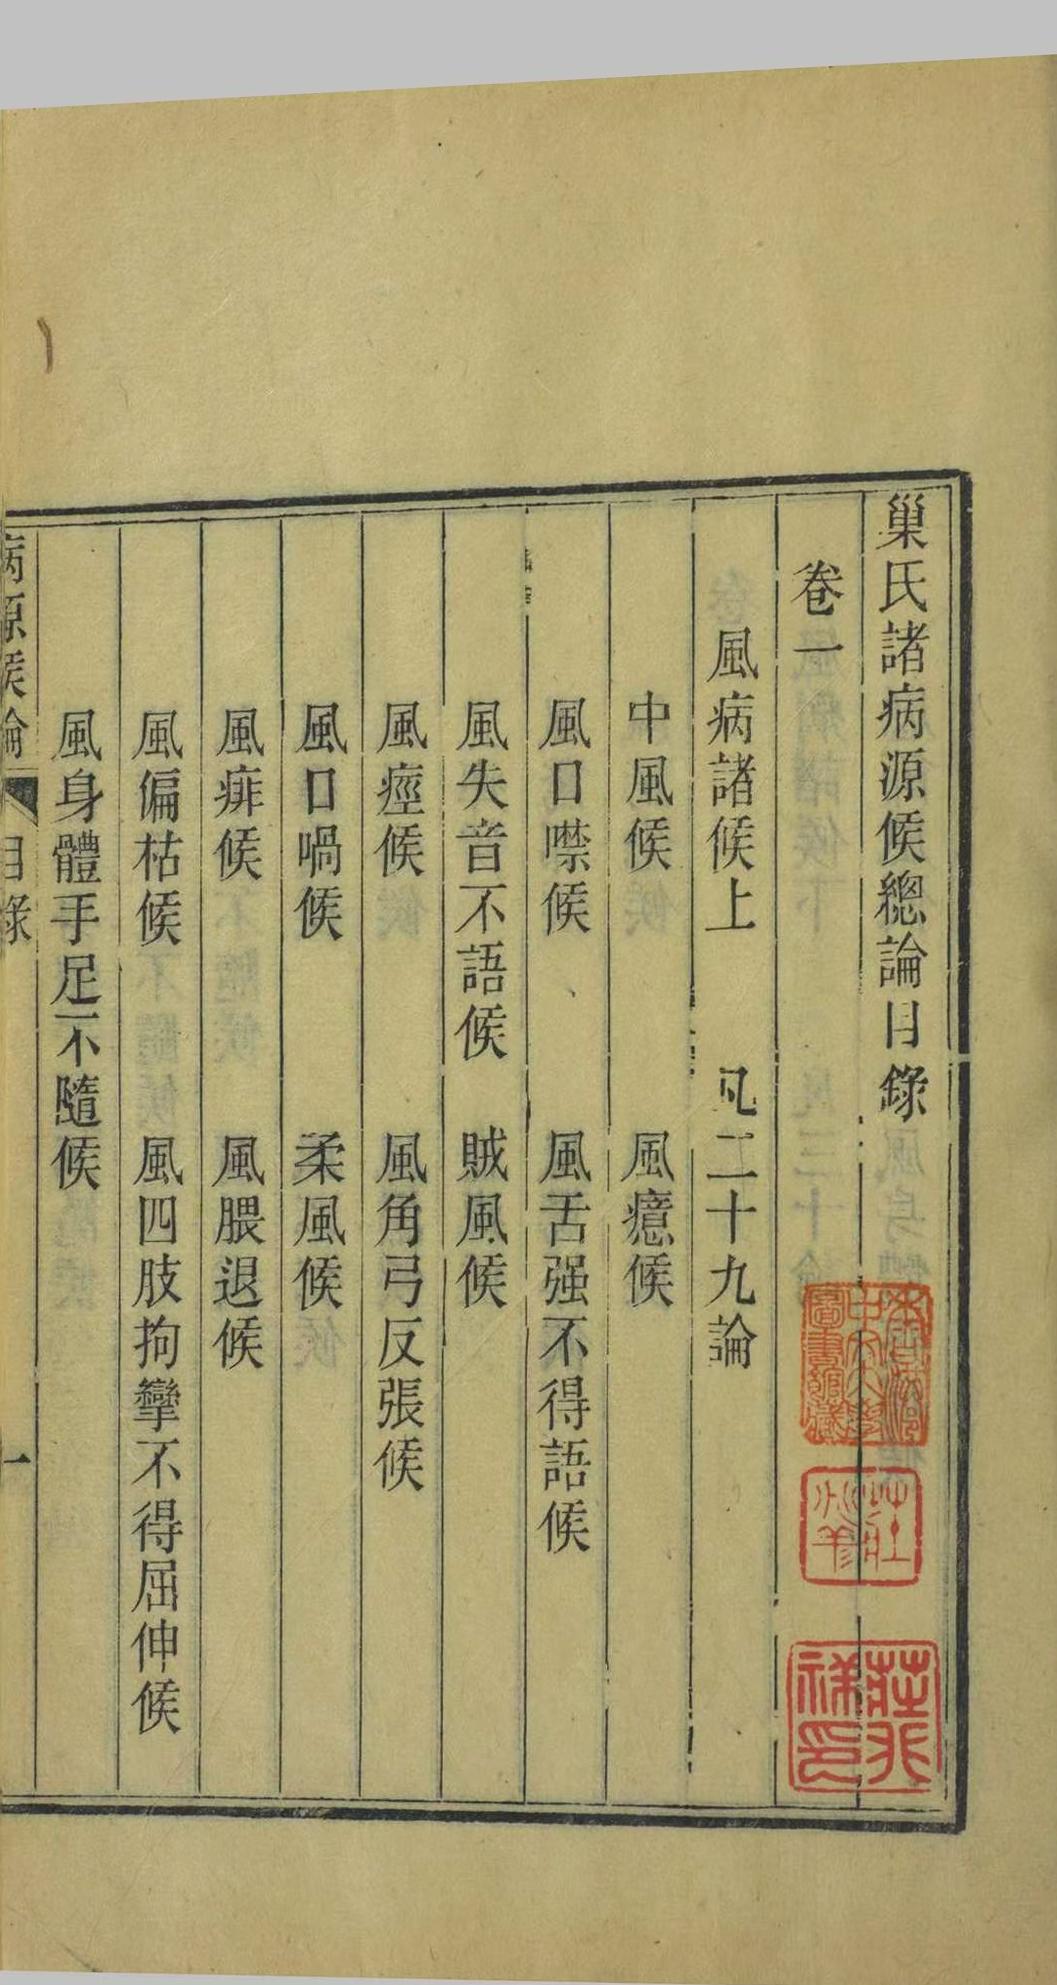 巢氏諸病源候總論目錄
卷一
風病諸候上　凡二十九論
中風候　風癔候
風口噤候　風舌强不得語候
風失音不語候　賊風候
風痙候　風角弓反張候
風口喎候　柔風候
風痱候　風腲退候
風偏枯候　風四肢拘攣不得屈伸候
風身體手足不隨候
病源候論　目錄　一
香港中文大學圖書館藏
莊兆祥印